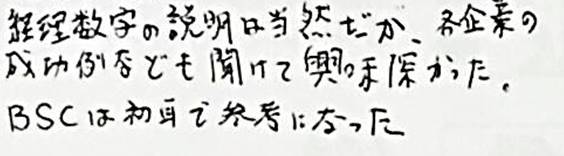 経理数字の説明は当然だが、各企業の
成功例なども聞けて興味深かった。
BSCは初耳で参考になった